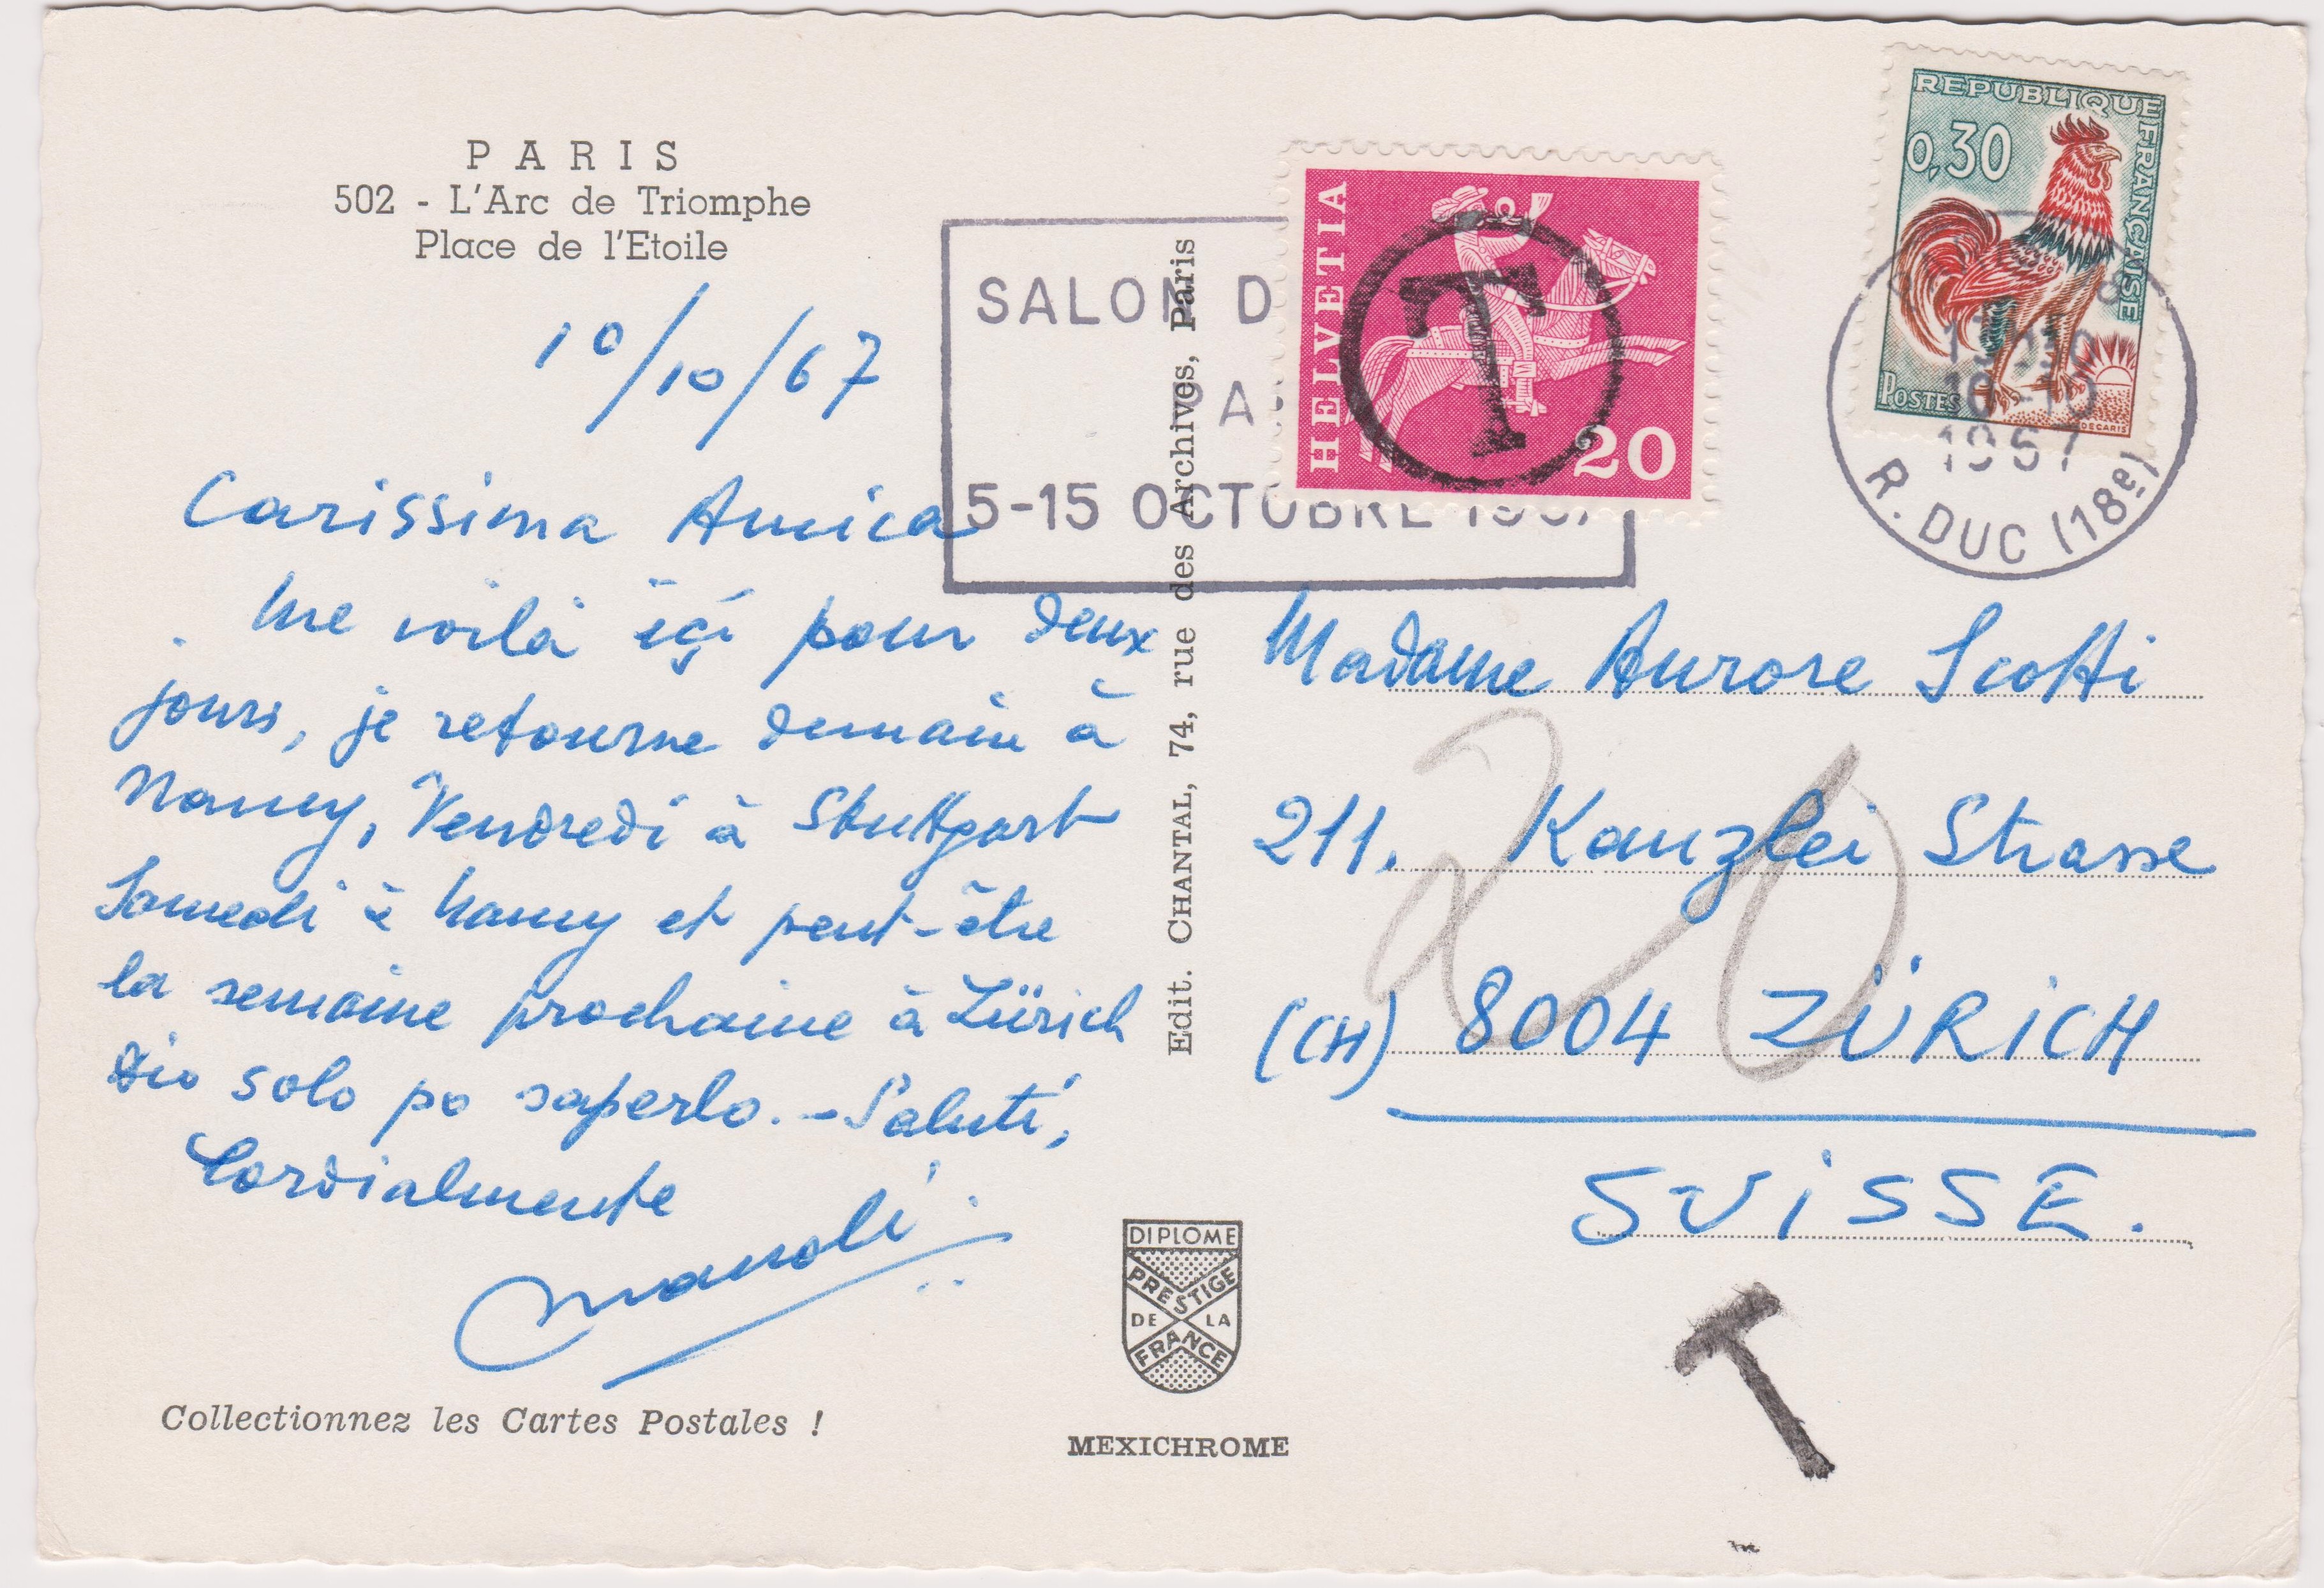 PARIS
502 - L'Arc de Triomphe
Place de l'Etoile
10/10/67
Carissima Amica
me voilà içi pour deux
jours, je retourne demain à
Nancy, Vendredi à Stuttgart
Samedi à Nancy et peut-être
la semaine prochaine à Zürich
Dio solo po saperlo. - Saluti,
Cordialmente
Manoli
Collectionnez les Cartes Postales !
Edit. CHANTAL, 74, rue des Archives, Paris
DIPLOME
PRESTIGE
DE LA
FRANCE
MEXICHROME
SALON D
PA
5-15 OCTOBRE 1967
HELVETIA
20
T
REPUBLIQUE FRANÇAISE
0,30
POSTES
DECARIS
10-10
1967
R. DUC (18e)
Madame Aurore Scotti
211. Kanzlei Strasse
(CH) 8004 ZÜRICH
SUISSE.
20
T